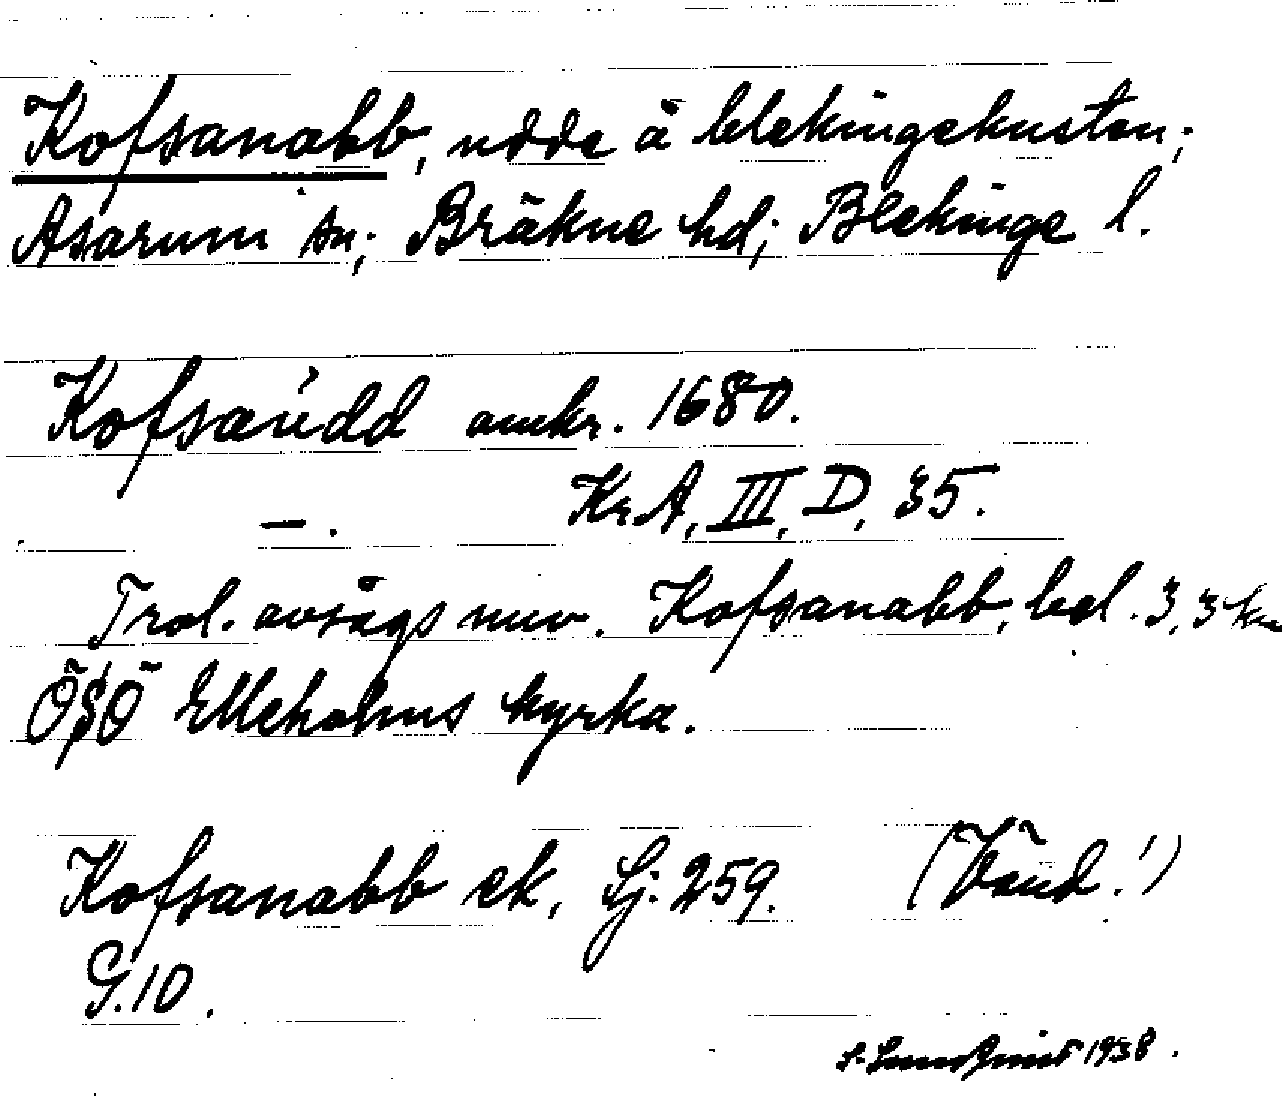 Kofsanabb, udde å blekingekusten;
Asarum sn; Bräkne hd; Blekinge l.
Kofsaúdd omkr. 1680.
—. Kr A, III, D, 35.
Trol. avsägs nuv. Kofsanabb, bel. 3,3 km
ÖSÖ Elleholms kyrka.
Kofsanabb ek, Sj. 259. (Vänd!)
G.10.
1938.